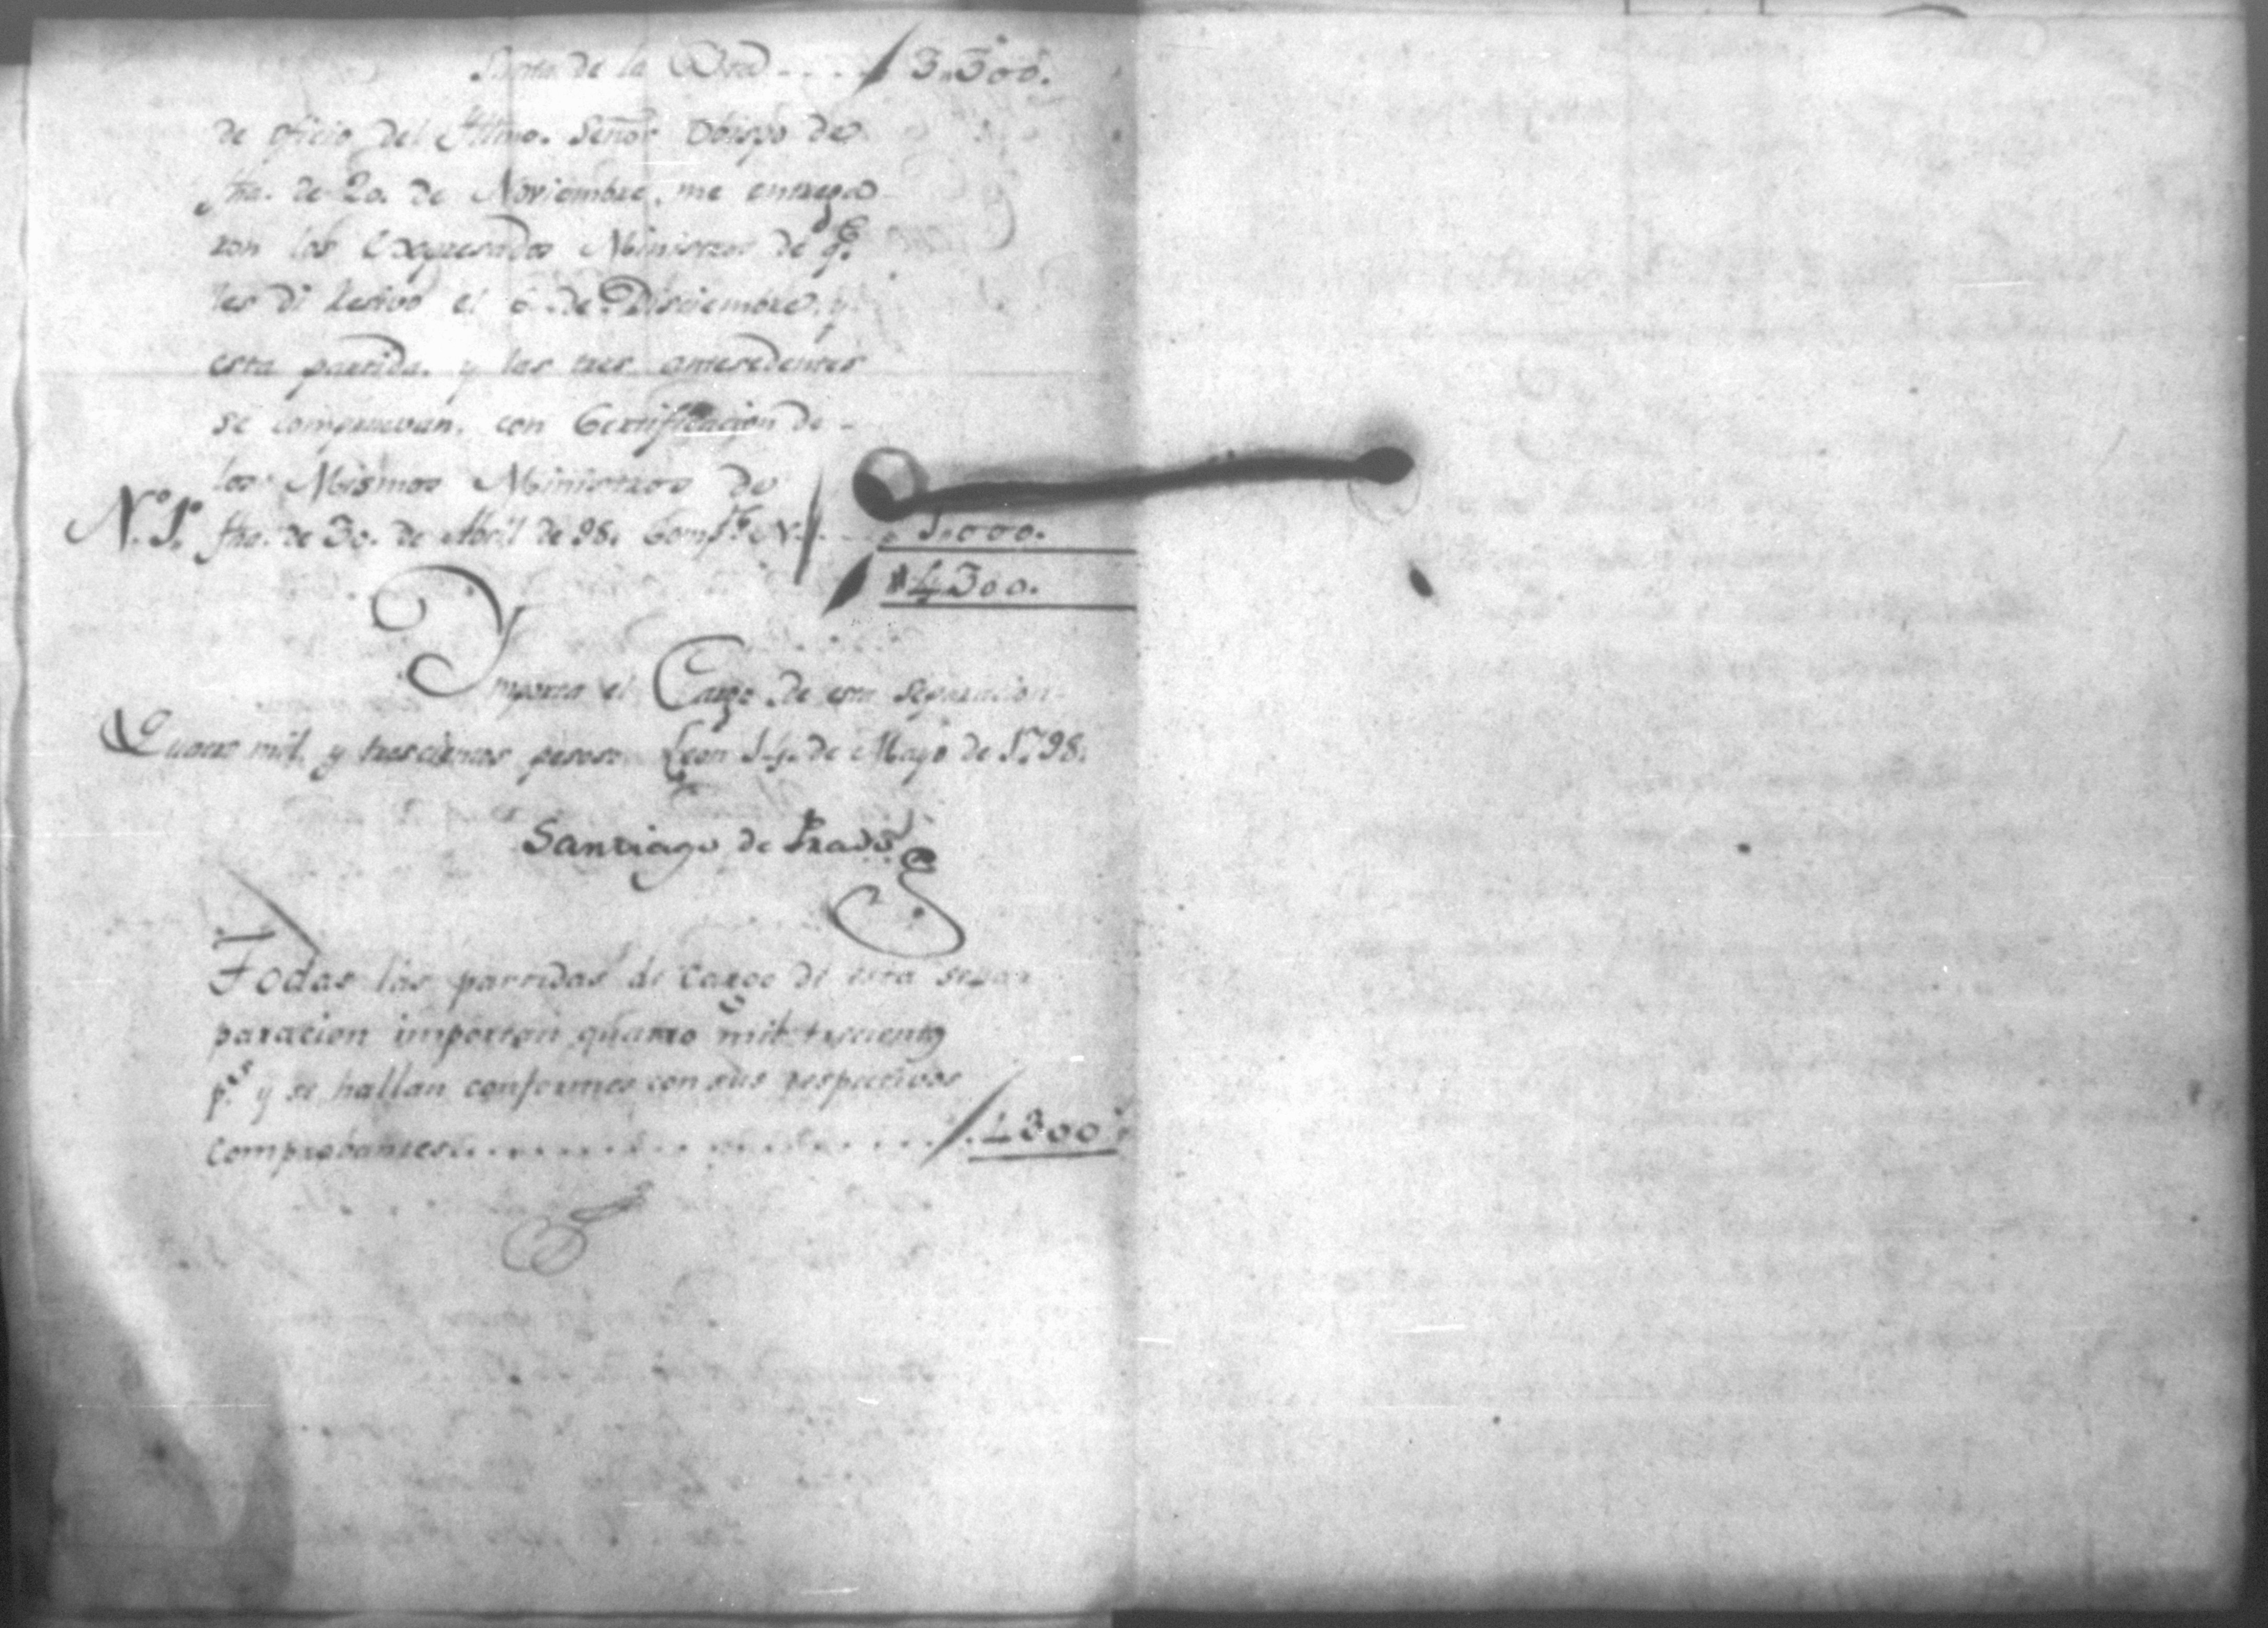 Suma de la Bta . . . . 3.300.
de oficio del Illmo. Señor Obispo de
fha. de 20. de Noviembre, me entrega
ron los expresados Ministros de q.e
les di resivo el 6 de Disciembre, y
esta partida, y las tres antesedentes
se compruevan, con Certificacion de
los Mismos Ministros de
N.º 1.º fha. de 30. de Abril de 98. Comp.te N. 1.000.
4300.
Ymporta el Cargo de esta separacion
Cuatro mil y trescientos pesos Leon 14. de Mayo de 1798.
Santiago de Prado
Todas las partidas de cargo de esta sepa
paracion importan quatro mil treciento
p.s y se hallan conformes con sus respectivos
comprobantes . . . . . . . . . 4300